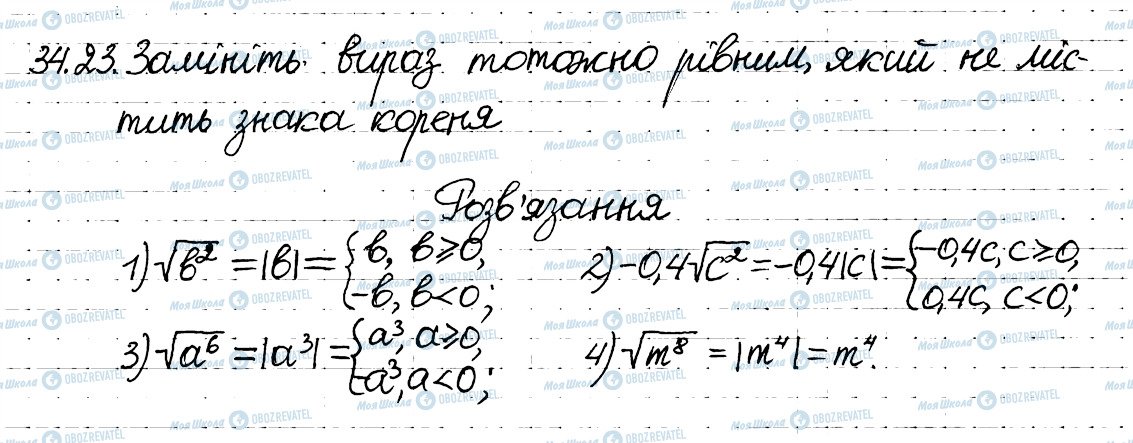 34.23. Замініть вираз тотожно рівним, який не міс-
тить знака кореня
Розв'язання
1) √b² = |b| = { b, b ≥ 0, -b, b < 0; 2) -0,4√c² = -0,4|c| = { -0,4c, c ≥ 0, 0,4c, c < 0;
3) √a⁶ = |a³| = { a³, a ≥ 0, -a³, a < 0; 4) √m⁸ = |m⁴| = m⁴.